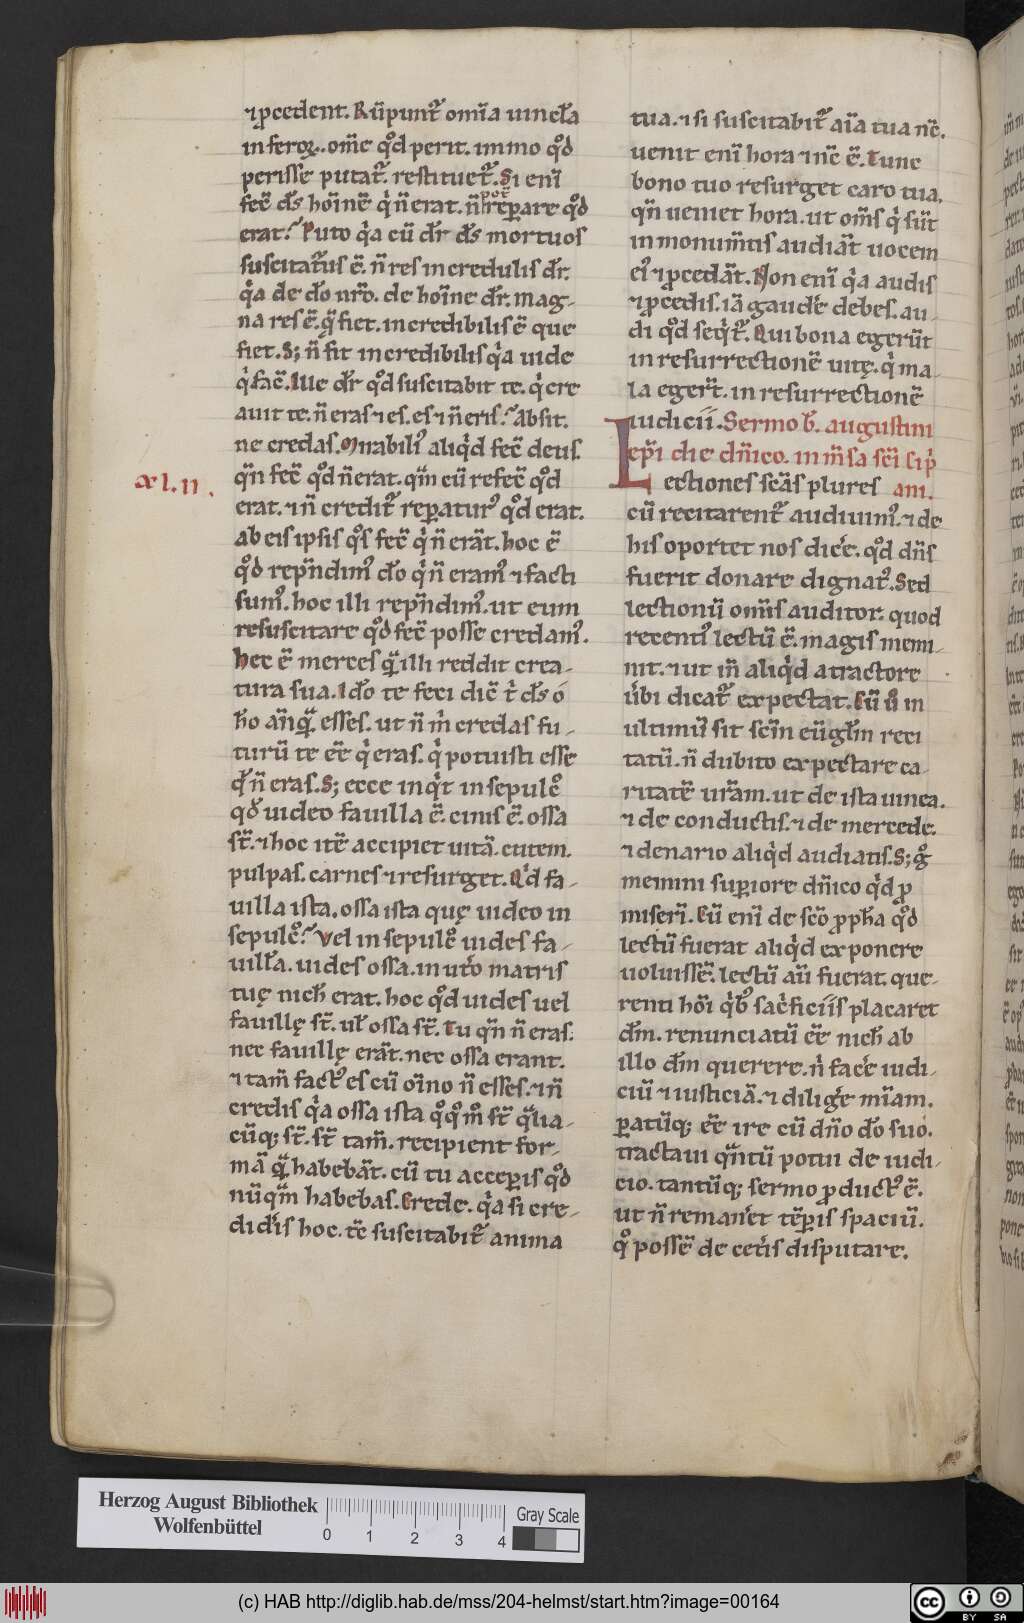 ⁊ ꝓcedent. Rūpunt᷑ om̄ia uincĺa
inferoꝝ. om̄e qͦd perit. immo qͦd
perisse putat᷑. restituet᷑. Si eni̅
fec̄ ds̄ hoi̅nē qⁱ n̄ erat. n̄ pot̄ rep̲are qͦd
erat? Puto qⁱa cū dr̄ ds̄ mortuos
suscitat᷑us ē. n̄ res incredulis dr̄.
qⁱa de dō nr̄o. de hoi̅ne dr̄. mag-
na res ē. q̄ fiet. incredibilis ē que
fiet. S; n̄ sit incredibilis qⁱa uide
qⁱ fac̄. Ille dr̄ qͦd suscitabit te. qⁱ cre
auit te. n̄ eras ⁊ es. es ⁊ n̄ eris? Absit.
ne credas. Mirabiliꝰ aliqⁱd fec̄ deus.
qn̄ fec̄ qͦd n̄ erat. qᵃm cū refec̄ qͦd
erat. ⁊ n̄ credit᷑ rep̲aturꝰ qͦd erat.
ab eis ipsis qͦs fec̄ qⁱ n̄ erāt. hoc ē
qͦd repn̄dimꝰ dō qⁱ n̄ eramꝰ ⁊ facti
sumꝰ. hoc illi repn̄dimꝰ. ut eum
resuscitare qͦd fec̄ posse credamꝰ.
Hec ē merces qᵃm illi reddit crea-
tura sua. Ido̅ te feci dic̄ tⁱ ds̄ ó
hō an̄qᵃ esses. ut n̄ mⁱ credas fu-
turū te eē qⁱ eras. qⁱ potuisti esse
qd̄ n̄ eras. S; ecce inqⁱt in sepulcͦ
qd̄ uideo fauilla ē. cinis ē. ossa
st̄. ⁊ hoc itē accipiet uitā. cutem.
pulpas. carnes ⁊ resurget. Qⁱd fa-
uilla ista. ossa ista quę uideo in
sepulcͦ? Vel in sepulcͦ uides fa-
uilĺa. uides ossa. in utͦo matris
tuę nich̄ erat. hoc qͦd uides uel
fauillę st̄. ul̄ ossa st̄. Tu qn̄ n̄ eras.
nec fauillę erāt. nec ossa erant.
⁊ tam̄ factꝰ es cū oi̅no n̄ esses. ⁊ n̄
credis qⁱa ossa ista qͦqͦmͦ st̄ qᵃlia-
cūq; st̄. st̄ tam̄. recipient for-
mā qᵃ habebāt. cū tu accep̲is qͦd
nūqᵃm habebas. Crede. qⁱa si cre-
didis̄ hoc. tē suscitabit᷑ anima
æl. ii.
tua. ⁊ si suscitabit᷑ aia̅ tua nc̄.
uenit eni̅ hora ⁊ nc̄ ē. Tunc
bono tuo resurget caro tua.
qn̄ ueniet hora. ut om̄s qⁱ sūt
in monum̄tis audiāt uocem
eiꝰ ⁊ ꝓcedāt. Non eni̅ qⁱa audis
⁊ ꝓcedis. iā gaudēe debes. au-
di qͦd seqⁱt᷑. Qui bona egerūt
in resurrectionē uitę. qⁱ ma-
la eger̄t. in resurrectionē
iudicii. Sermo b̄. augustini
ep̄i die dn̄ico. in m̄sa sc̄i cip̲
Lectiones scās plures ani.
cū recitarent᷑ audiuimꝰ. ⁊ de
his oportet nos dicēe. qͦd dn̄s
fuerit donare dignatꝰ. Sed
lectionū omīs auditor. quod
recentiꝰ lectū ē. magis memi-
nit. ⁊ ut in̄ aliqⁱd a tractore
ūbi dicat᷑ expectat. Cū ū in
ultimū sit sc̄m eūgl̄m reci
tatū. n̄ dubito expectare ca-
ritatē ur̄am. ut de ista uinea.
⁊ de conductis. ⁊ de mercede.
⁊ denario aliqⁱd audiatis. S; gͦ
memini sup̲iore dn̄ico qⁱd ꝓ
miseri̅. Cū eni̅ de scō ꝓph̄a qͦd
lectū fuerat aliqⁱd exponere
uoluissē. lectū au̅ fuerat. que-
renti hōi qⁱbꝰ sacⁱficiis placaret
dm̄. renunciatū eē nich̄ ab
illo dm̄ querere. nⁱ facēe iudi-
ciū ⁊ iusticiā. ⁊ diligēe mi̅am.
p̲atūq; eē ire cū dn̄o dō suo.
tractaui qᵃntū potui de iudi-
cio. tantūq; sermo ꝓductꝰ ē.
ut n̄ remanēet tēp̲is spaciū.
qͦ possē de cetīs disputare.
Herzog August Bibliothek
Wolfenbüttel
0 1 2 3 4
Gray Scale
(c) HAB http://diglib.hab.de/mss/204-helmst/start.htm?image=00164
cc BY SA